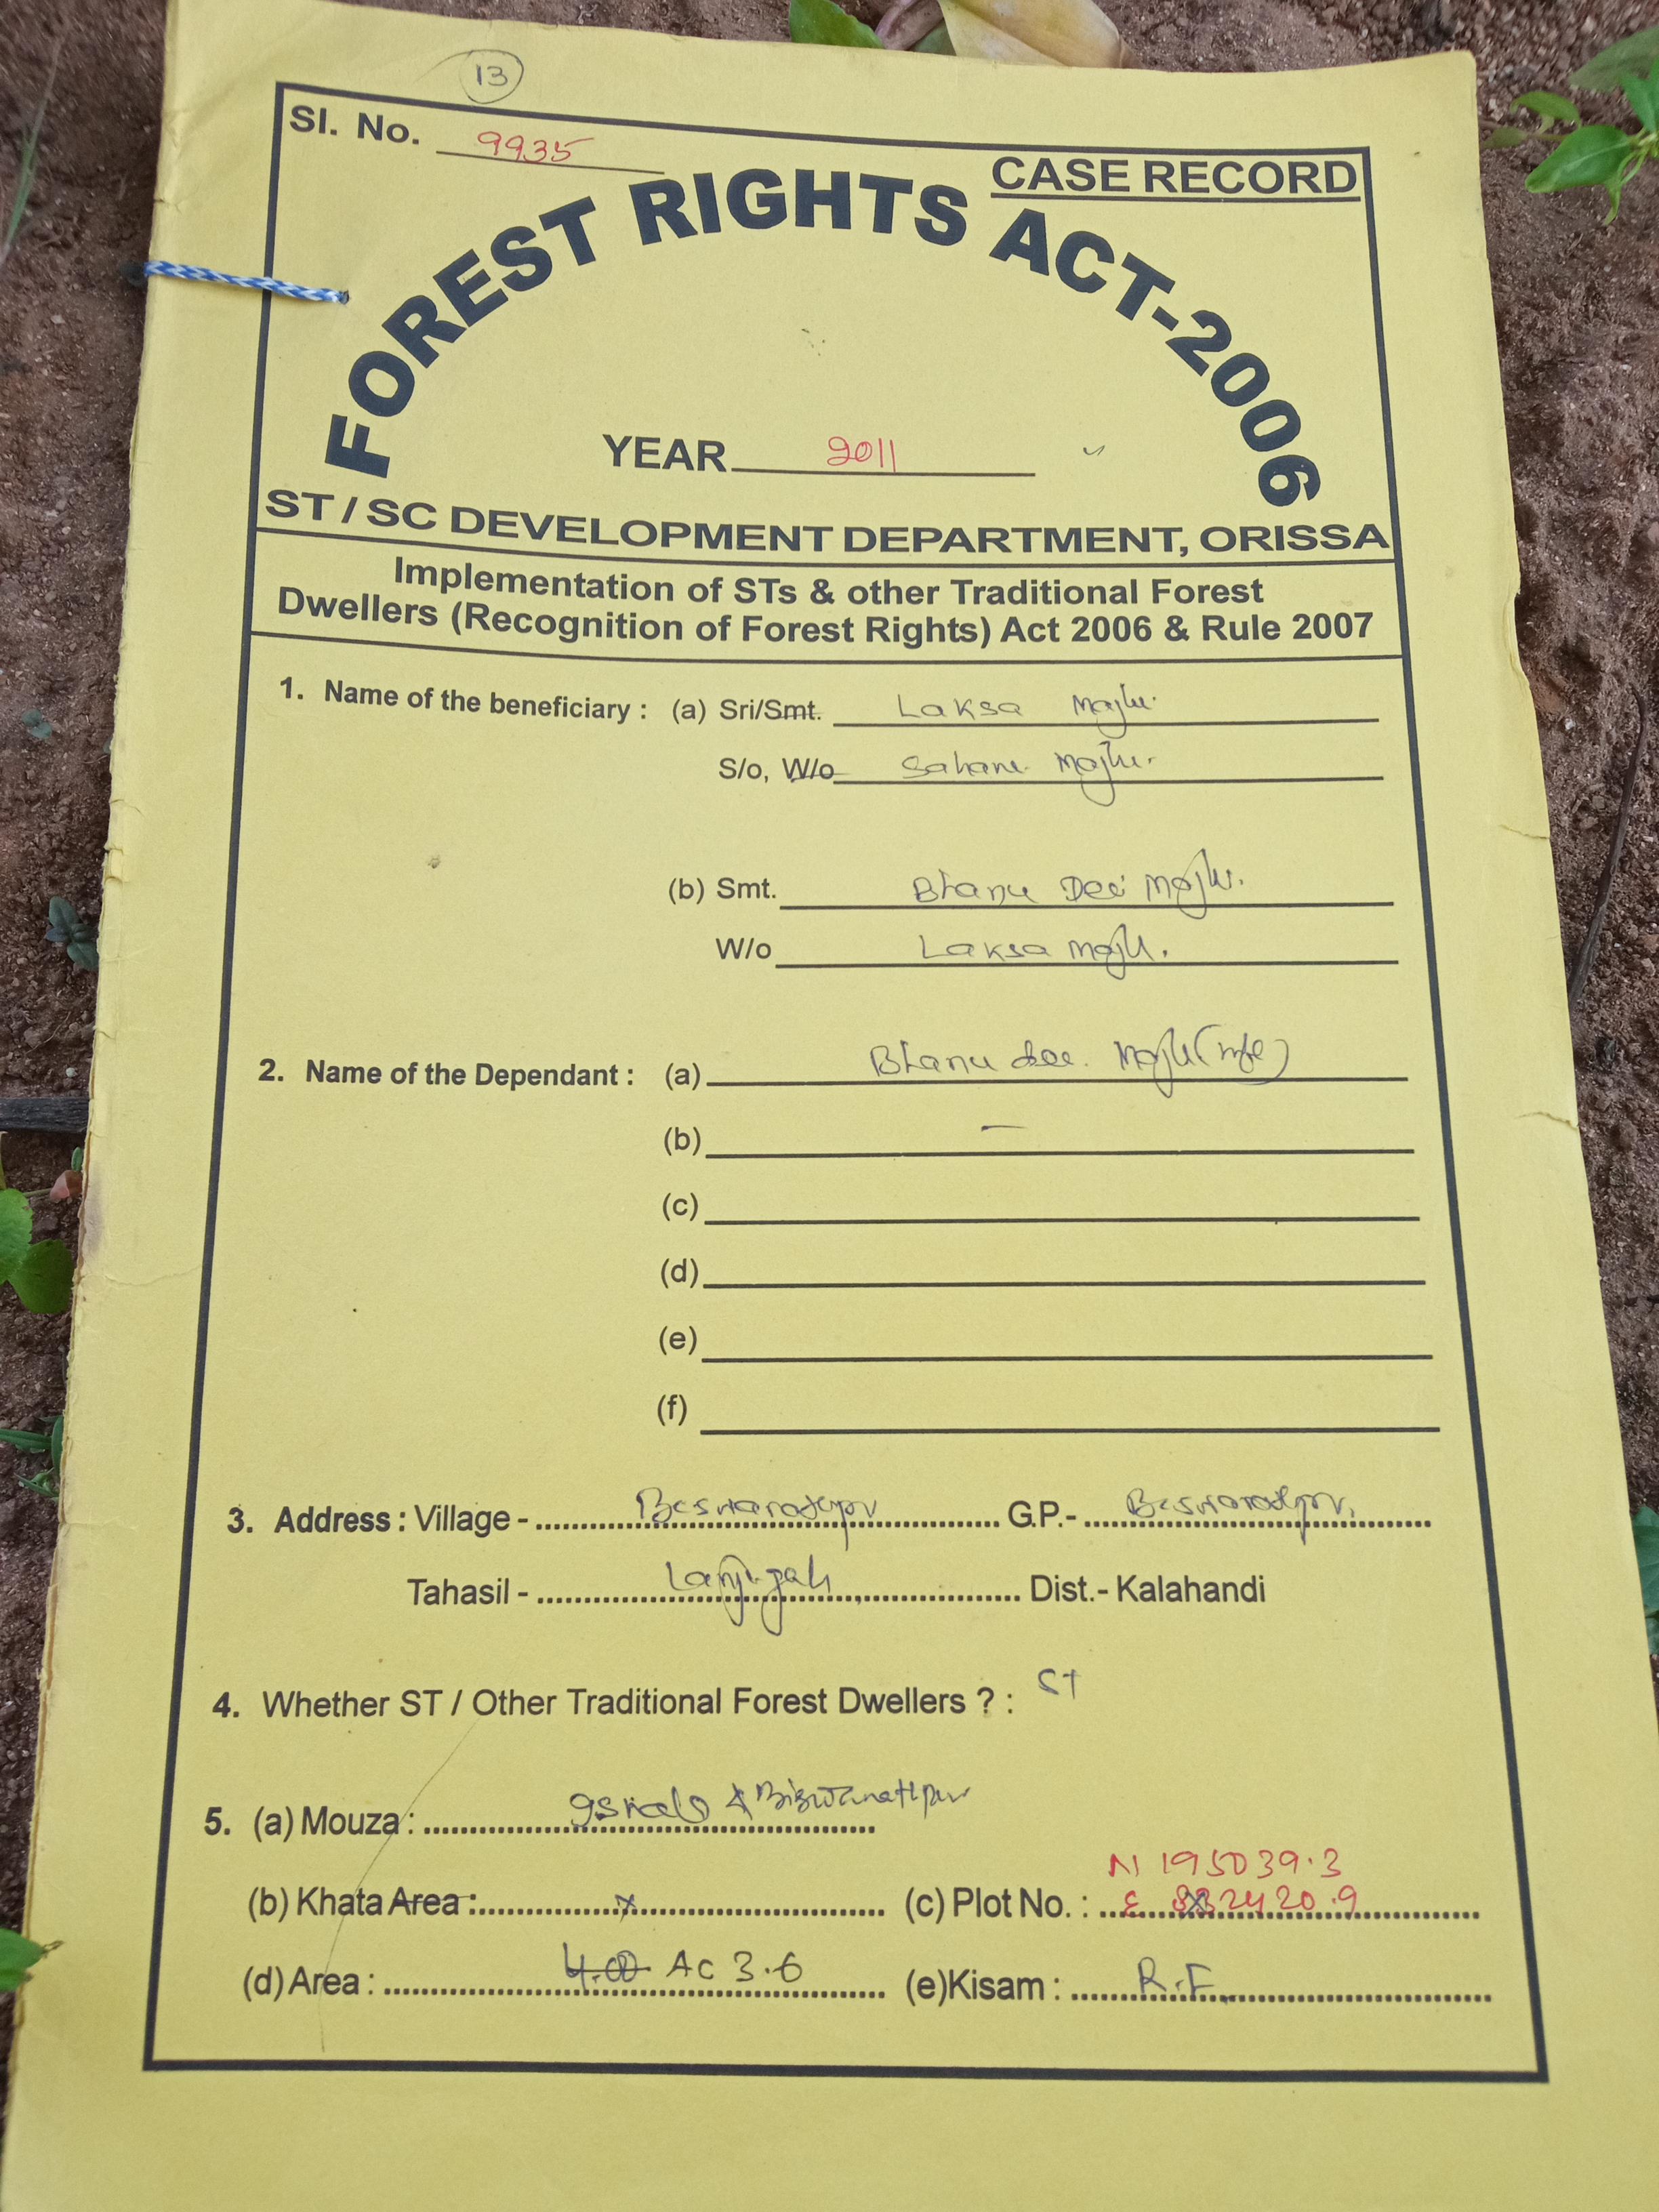 13
Sl. No. 9935
CASE RECORD
FOREST RIGHTS ACT-2006
YEAR 2011
ST / SC DEVELOPMENT DEPARTMENT, ORISSA
Implementation of STs & other Traditional Forest
Dwellers (Recognition of Forest Rights) Act 2006 & Rule 2007
1. Name of the beneficiary : (a) Sri/Smt. Laksa Majhi.
S/o, W/o Majhi.
(b) Smt. Bhanu Dei Majhi.
W/o Laksa Majhi.
2. Name of the Dependant : (a) Bhanu dei. Majhi (wife)
(b) –
(c)
(d)
(e)
(f)
3. Address : Village - Biswanathpur G.P.- Biswanathpur.
Tahasil - Lanjigarh Dist.- Kalahandi
4. Whether ST / Other Traditional Forest Dwellers ? : ST
5. (a) Mouza : & Biswanathpur
N 195039.3
(b) Khata Area : x (c) Plot No. : E 832420.9
(d) Area : 4.00 Ac 3.6 (e)Kisam : R.F